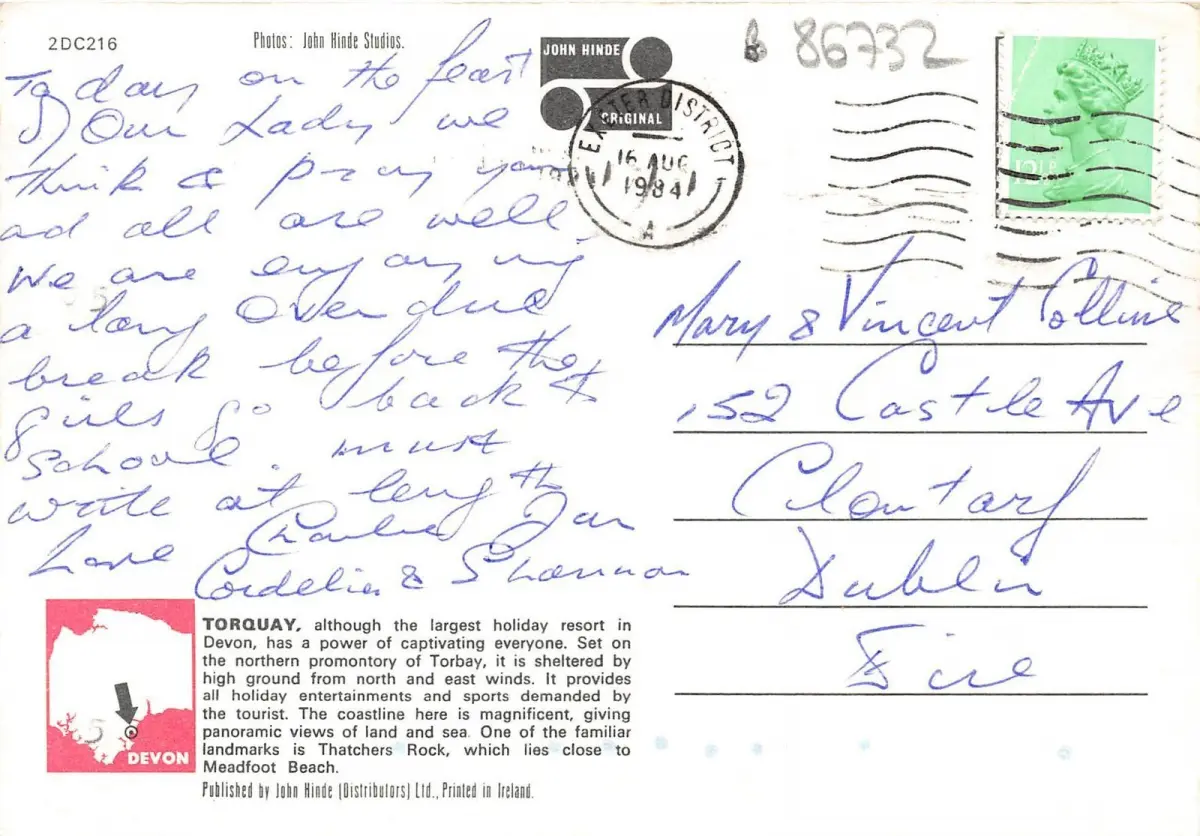 2DC216
Photos: John Hinde Studios.
JOHN HINDE
ORIGINAL
EXETER DISTRICT
16 AUG
1984
A
B 86732
12½P
Today on the feast
of Our Lady we
think & pray you
ad all are well.
We are enjoying
a long overdue
break before the
girls go back to
school. must
write at length
Love Charlie Jan
Cordelia & Shannon
Mary & Vincent Collins
152 Castle Ave
Clontarf
Dublin
Eire
DEVON
TORQUAY, although the largest holiday resort in
Devon, has a power of captivating everyone. Set on
the northern promontory of Torbay, it is sheltered by
high ground from north and east winds. It provides
all holiday entertainments and sports demanded by
the tourist. The coastline here is magnificent, giving
panoramic views of land and sea. One of the familiar
landmarks is Thatchers Rock, which lies close to
Meadfoot Beach.
Published by John Hinde (Distributors) Ltd., Printed in Ireland.